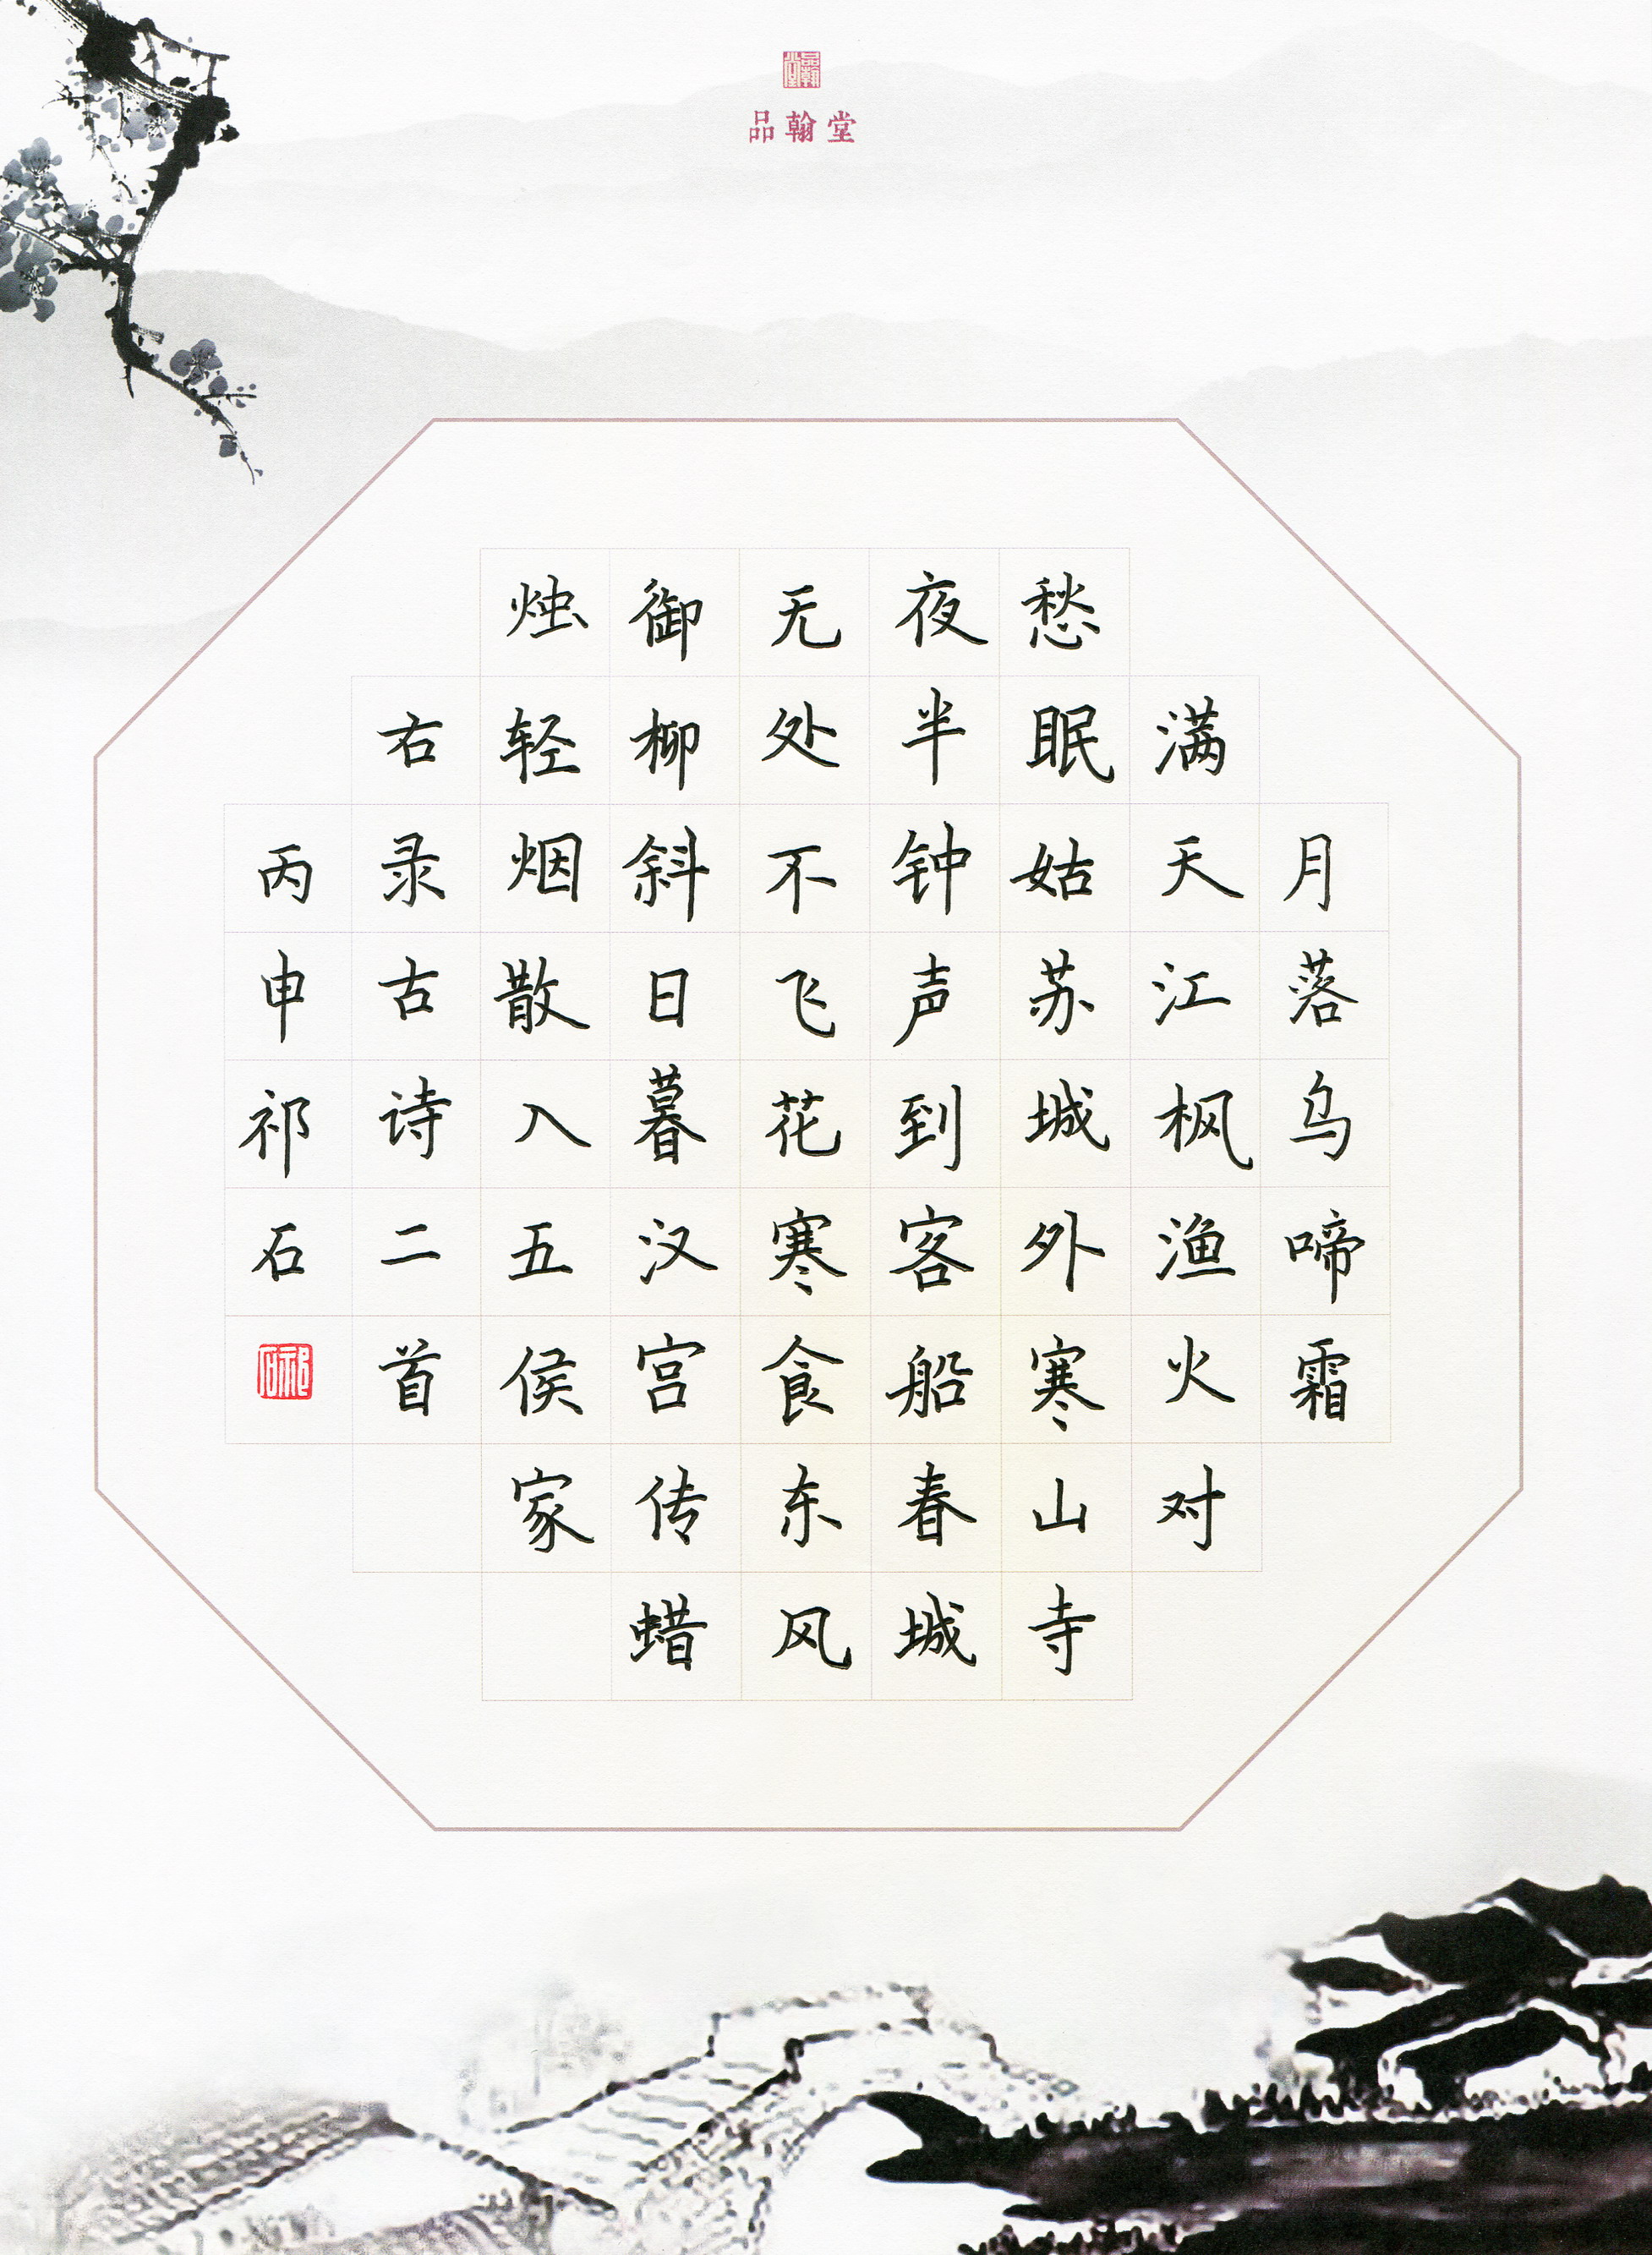 品翰堂
品翰堂
月落乌啼霜
满天江枫渔火对
愁眠姑苏城外寒山寺
夜半钟声到客船春城
无处不飞花寒食东风
御柳斜日暮汉宫传蜡
烛轻烟散入五侯家
右录古诗二首
丙申祁石
祁石